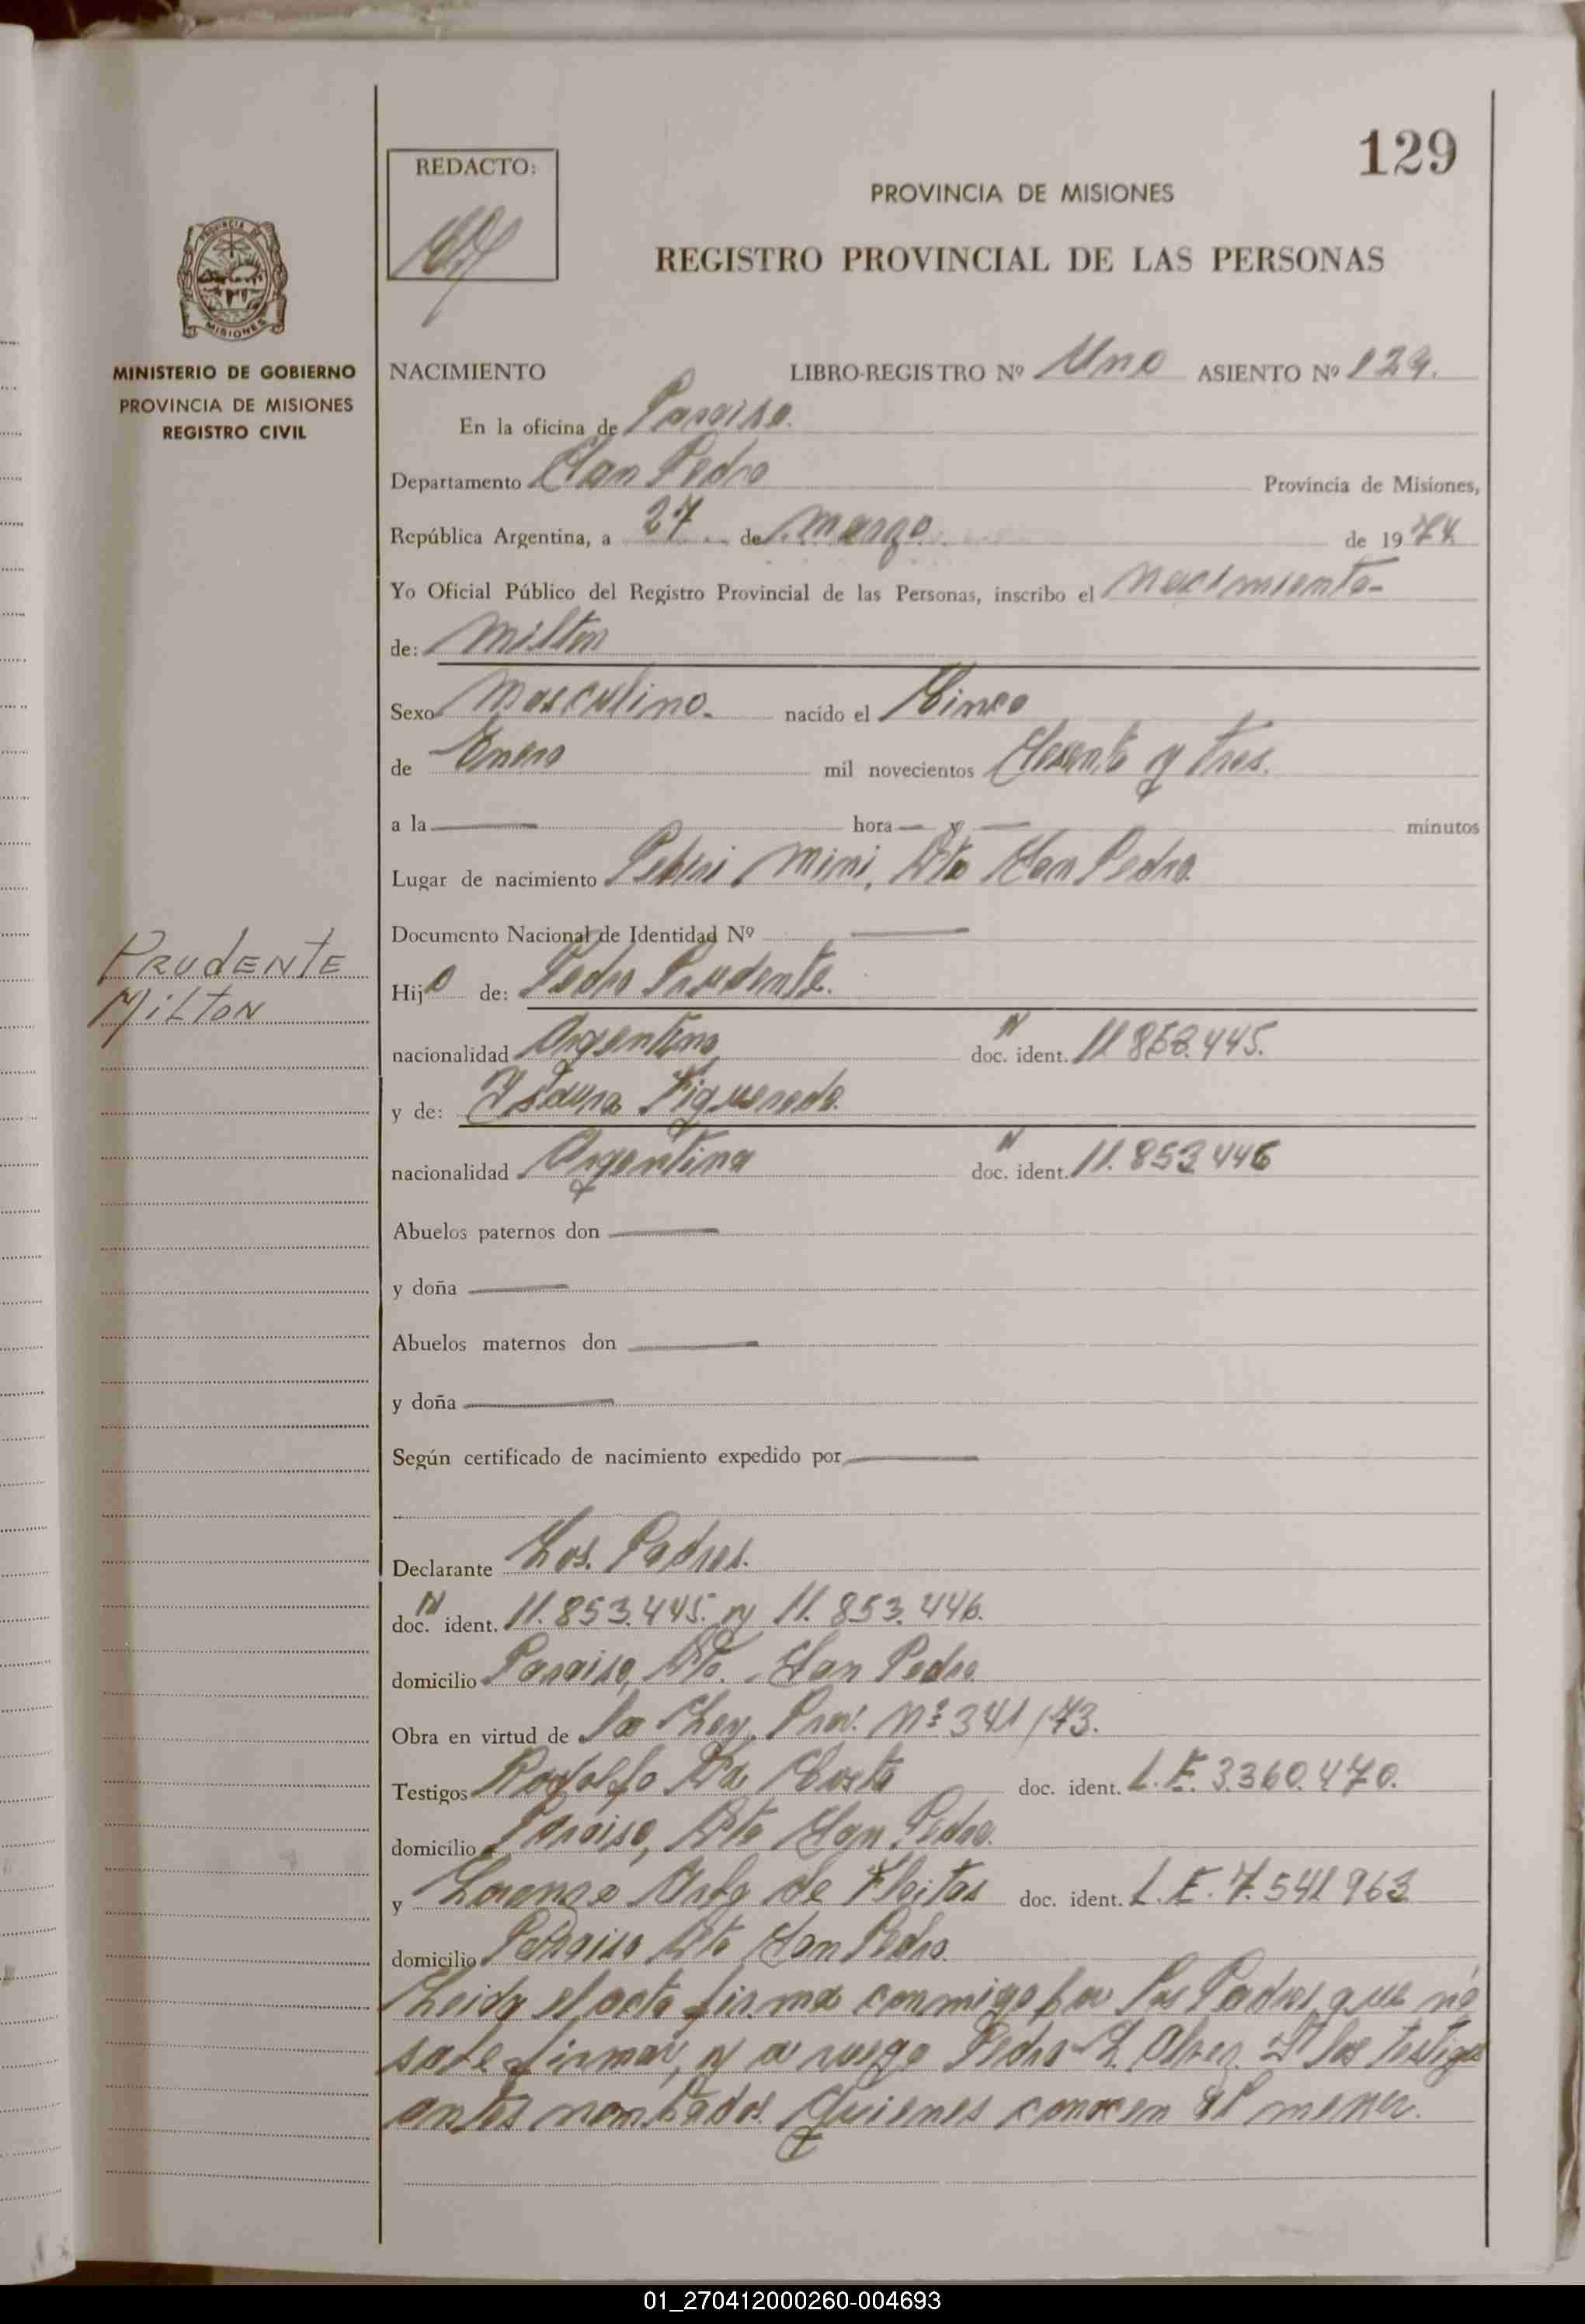 129
REDACTO:
PROVINCIA DE MISIONES
REGISTRO PROVINCIAL DE LAS PERSONAS
PROVINCIA DE
MISIONES
MINISTERIO DE GOBIERNO
PROVINCIA DE MISIONES
REGISTRO CIVIL
NACIMIENTO LIBRO-REGISTRO Nº Uno ASIENTO Nº 129.
En la oficina de Paraiso.
Departamento San Pedro Provincia de Misiones,
República Argentina, a 27 de marzo de 1974
Yo Oficial Público del Registro Provincial de las Personas, inscribo el nacimiento-
de: Milton
Sexo Masculino. nacido el Cinco
de Enero mil novecientos Sesenta y tres.
a la — hora — y — minutos
Lugar de nacimiento Mini, Dto San Pedro.
Documento Nacional de Identidad Nº —
PRUDENTE
MiLTON
Hijo de: Pedro Prudente.
nacionalidad Argentino doc. N ident. 11.853.445.
y de: Isaura Figueredo.
nacionalidad Argentina doc. N ident. 11.853.446
Abuelos paternos don —
y doña —
Abuelos maternos don —
y doña —
Según certificado de nacimiento expedido por —
Declarante Los. Padres.
doc. N ident. 11.853.445. y 11.853.446.
domicilio Paraiso, Dto. San Pedro
Obra en virtud de la Ley. Prov. Nº 341/73.
Testigos Rodolfo Da Costa doc. ident. L.E. 3.360.470.
domicilio Paraiso, Dto San Pedro.
y Lorenzo de Fleitas doc. ident. L.E. 7.541.963
domicilio Paraiso Dto San Pedro.
Leida el acta firma conmigo por los Padres que no
sabe firmar, y a ruego Pedro los testigos
antes nombrados. Quienes conocen al menor.
01_270412000260-004693